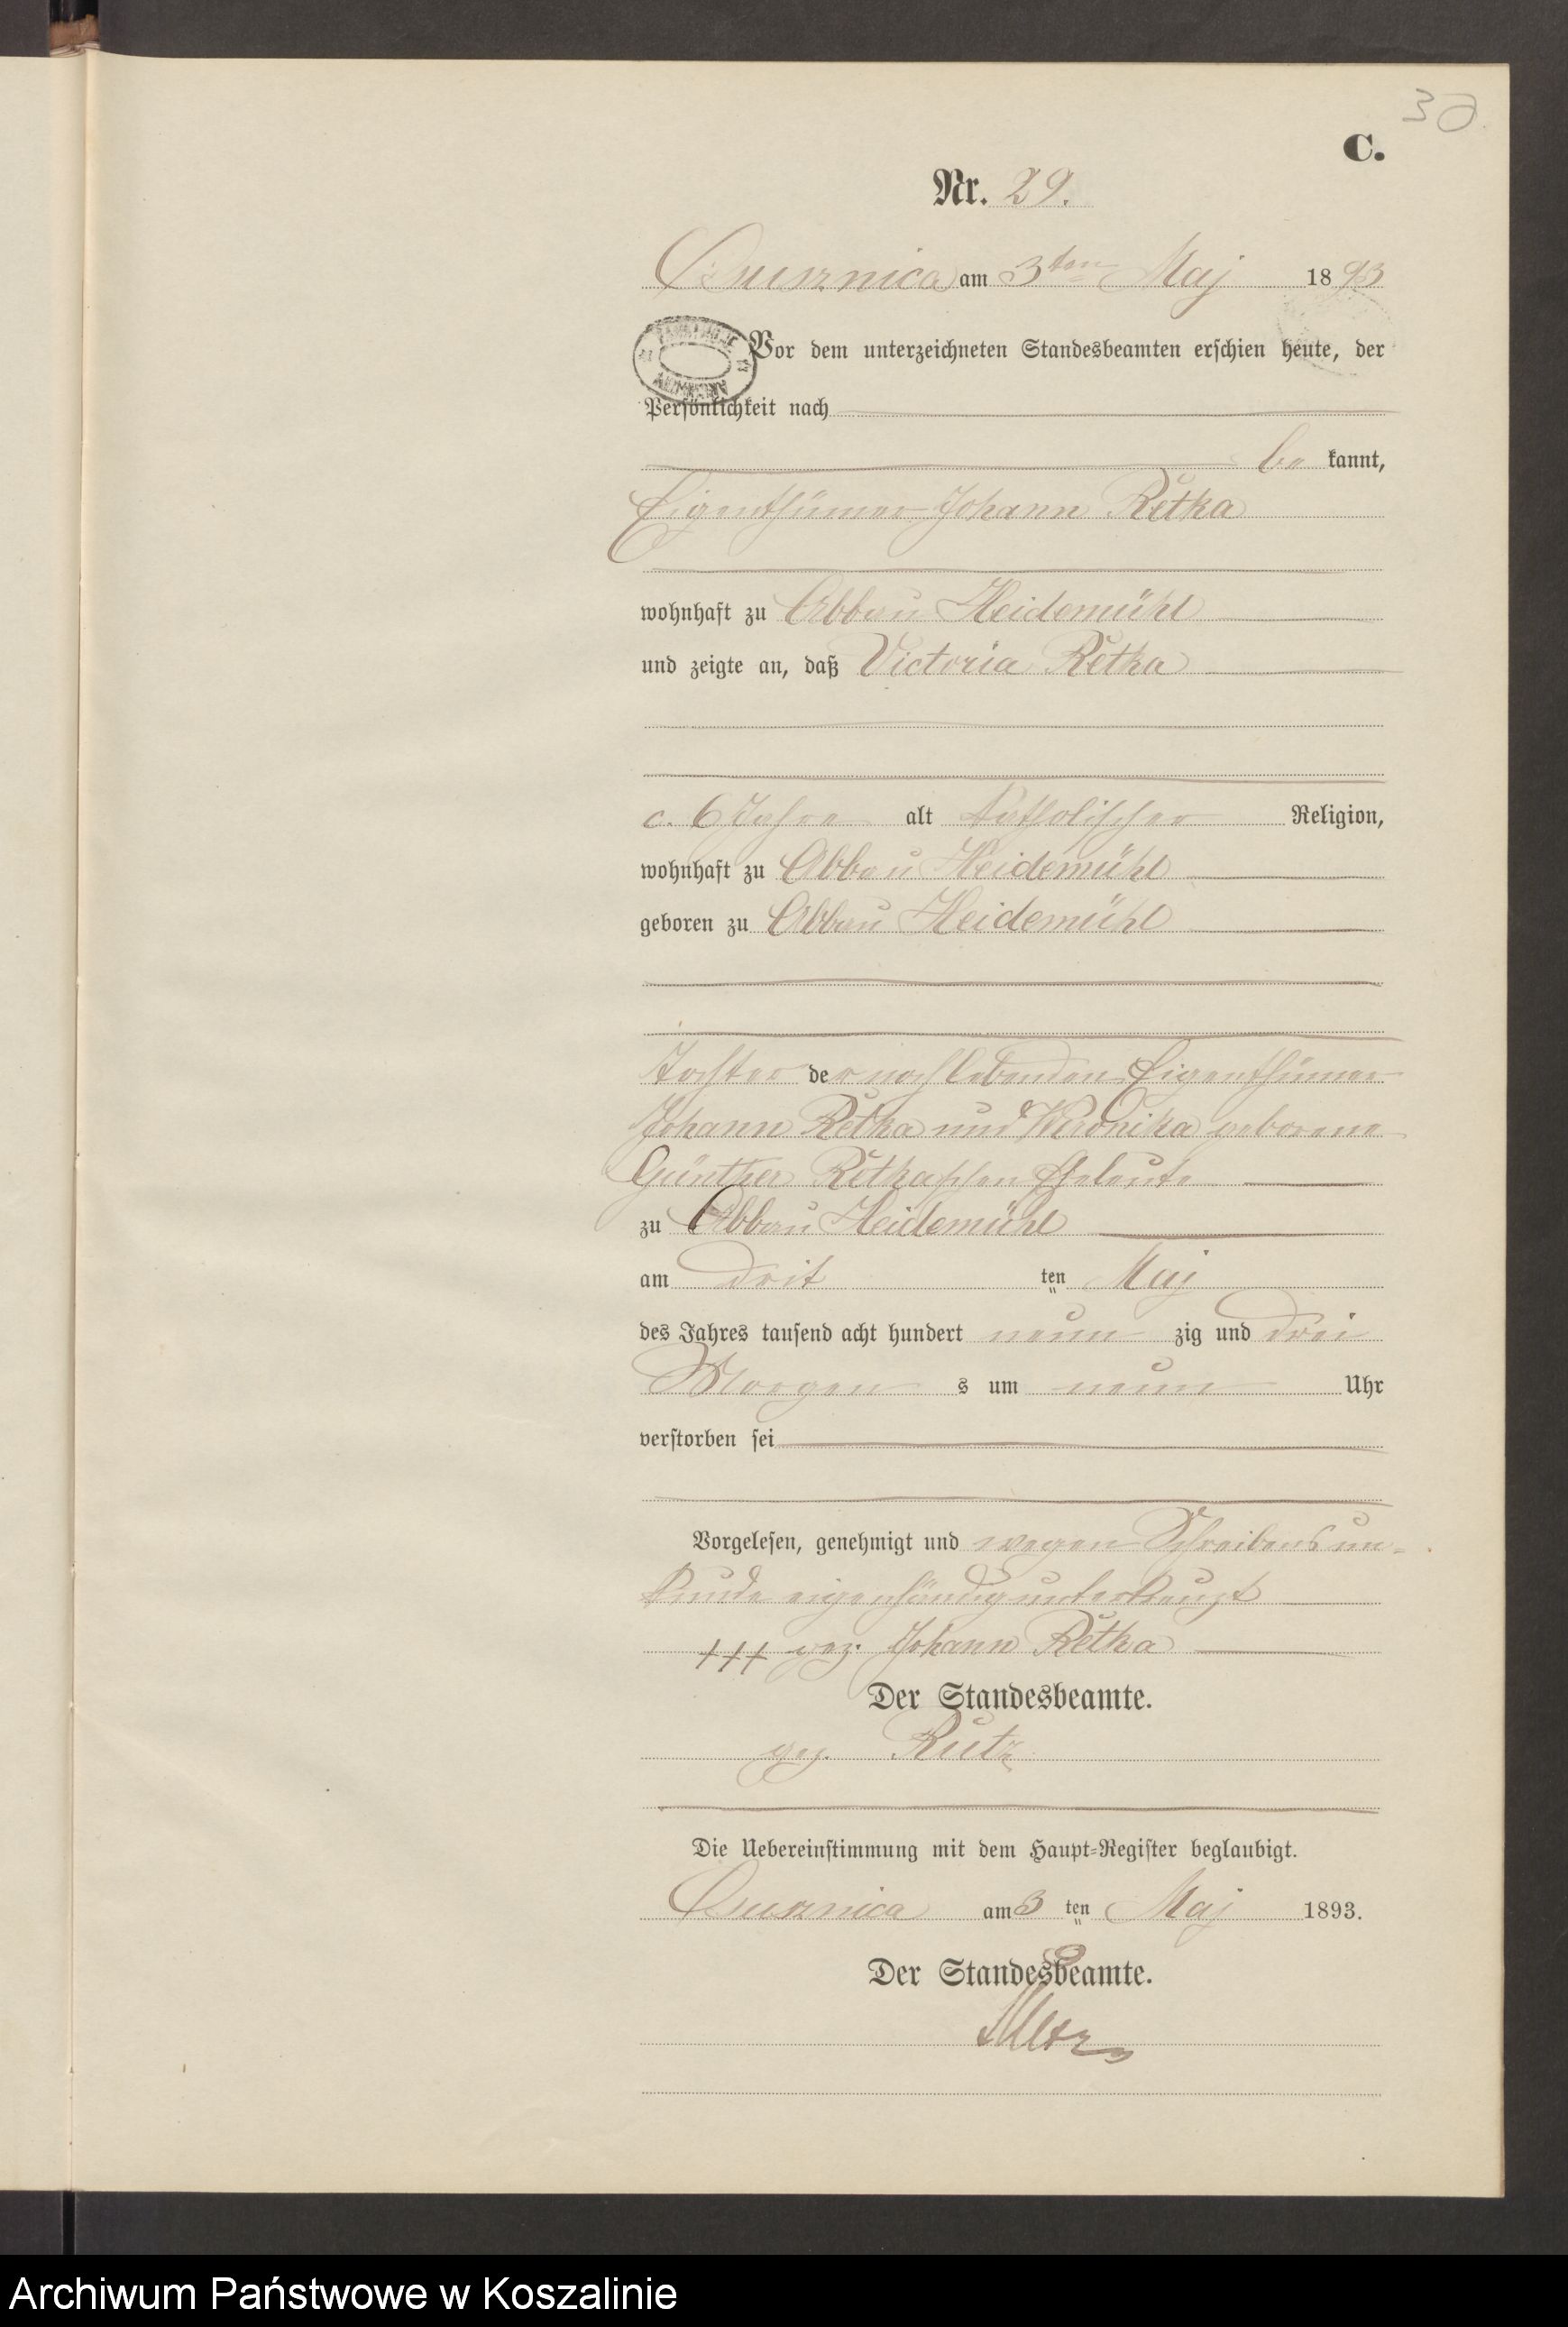 30.
C.
Nr. 29.
am 3ten Maj 1893
Vor dem unterzeichneten Standesbeamten erschien heute, der
Persönlichkeit nach
be kannt,
Eigenthümer Johann Retka
wohnhaft zu Abbau Heidemühl
und zeigte an, daß Victoria Retka
c. 6 Jahre alt katholischer Religion,
wohnhaft zu Abbau Heidemühl
geboren zu Abbau Heidemühl
Tochter der noch lebenden Eigenthümer
Johann Retka und Veronika geborene
Günther Retkaschen Eheleute
zu Abbau Heidemühl
am drit ten Maj
des Jahres tausend acht hundert neun zig und drei
Morgen s um neun Uhr
verstorben sei
Vorgelesen, genehmigt und wegen Schreibensun-
kunde eigenhändig unterkreuzt
+++ gez. Johann Retka
Der Standesbeamte.
gez. Rutz
Die Uebereinstimmung mit dem Haupt-Register beglaubigt.
am 3 ten Maj 1893.
Der Standesbeamte.
Archiwum Państwowe w Koszalinie